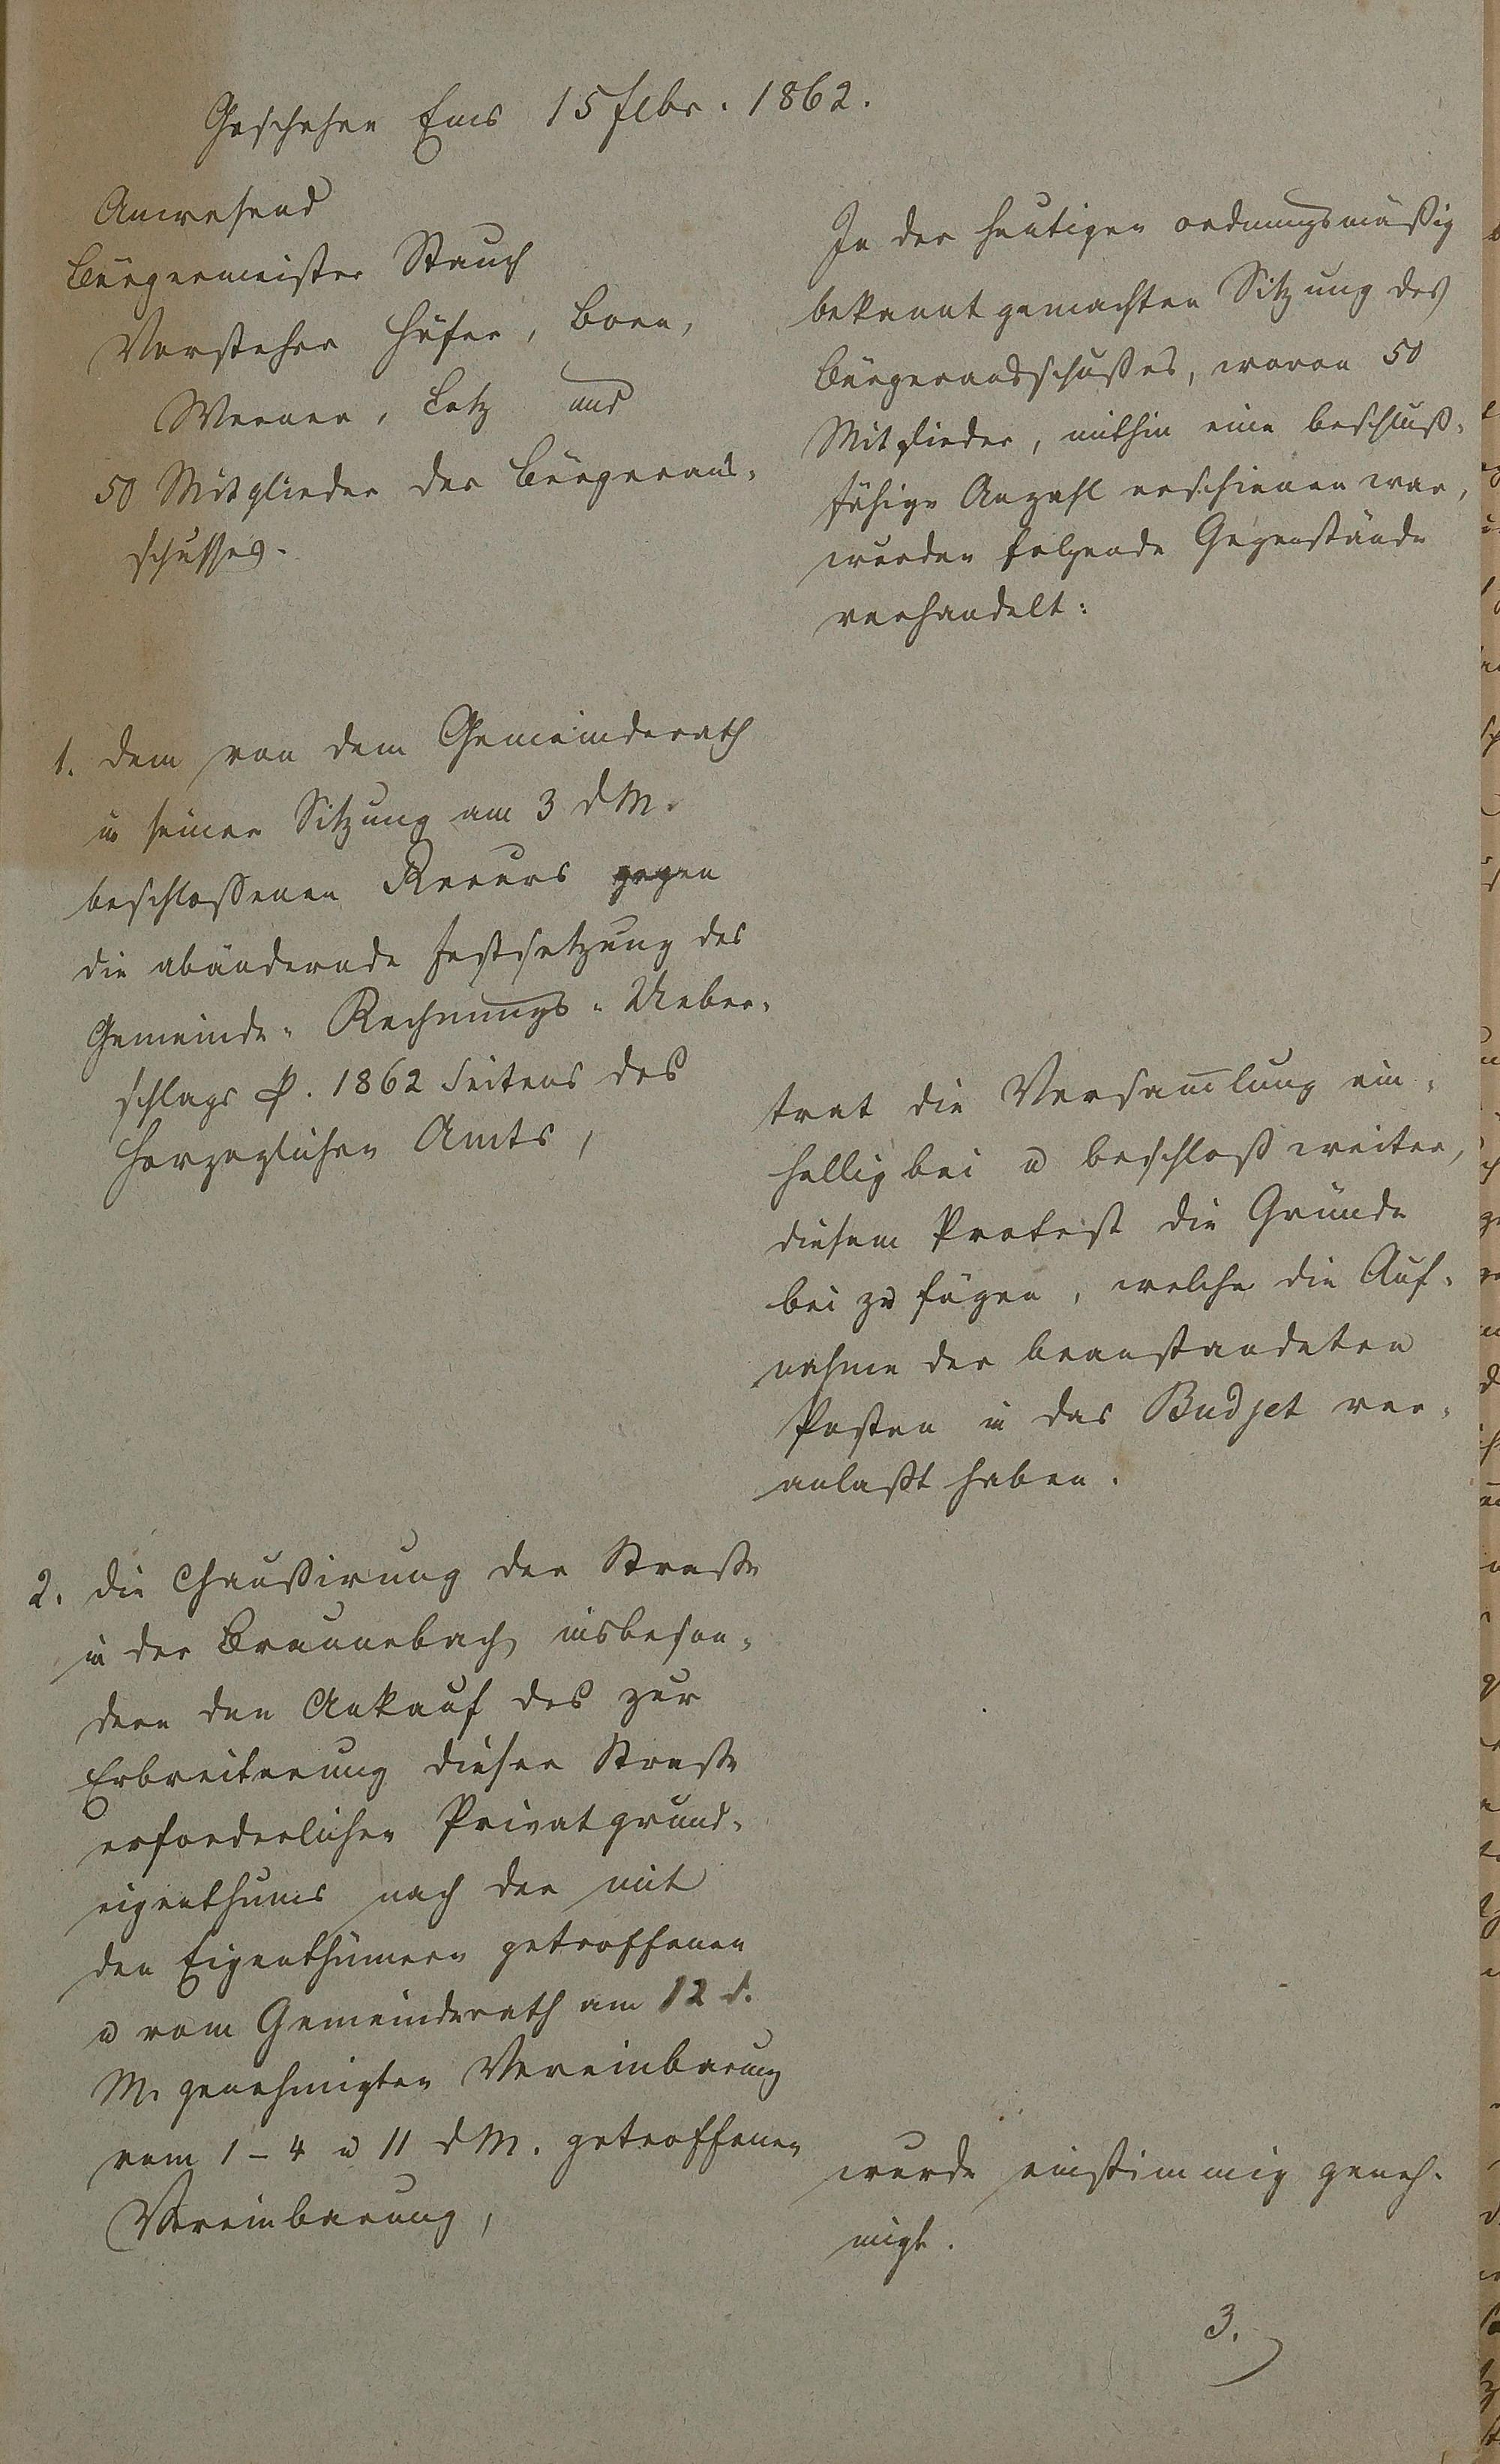 Geschehen Ems 15 Febr. 1862.
Anwesend
Bürgermeister Stauch
Vorsteher Höfer, Born,
Werner, Letz und
50 Mitglieder des Bürgeraus-
schusses.
In der heutigen ordnungsmäßig
bekannt gemachten Sitzung des
Bürgerausschußes, wovon 50
Mitglieder, mithin eine beschluß-
fähige Anzahl erschienen war,
wurden folgende Gegenstände
verhandelt:
1. Dem von dem Gemeinderath
in seiner Sitzung am 3 d M.
beschloßenen Recurs gegen
die abändernde Festsetzung des
Gemeinde-Rechnungs-Ueber-
schlags p. 1862 Seitens des
Herzoglichen Amts,
trat die Versam̅lung ein-
hellig bei u beschloß weiter,
diesem Protest die Gründe
bei zu fügen, welche die Auf-
nahme der beanstandeten
Posten in das Budjet ver-
anlaßt haben.
2. Die Chaußirung der Straße
in der Braunebach, insbeson-
dere den Ankauf des zur
Erbreiterung dieser Straße
erforderlichen Privatgrund-
eigenthums nach der mit
den Eigenthümern getroffenen
u vom Gemeinderath am 12 d.
M. genehmigten Vereinbarung
vom 1 – 4 u 11 d M. getroffenen
Vereinbarung,
wurde einstimmig geneh-
migt.
3.